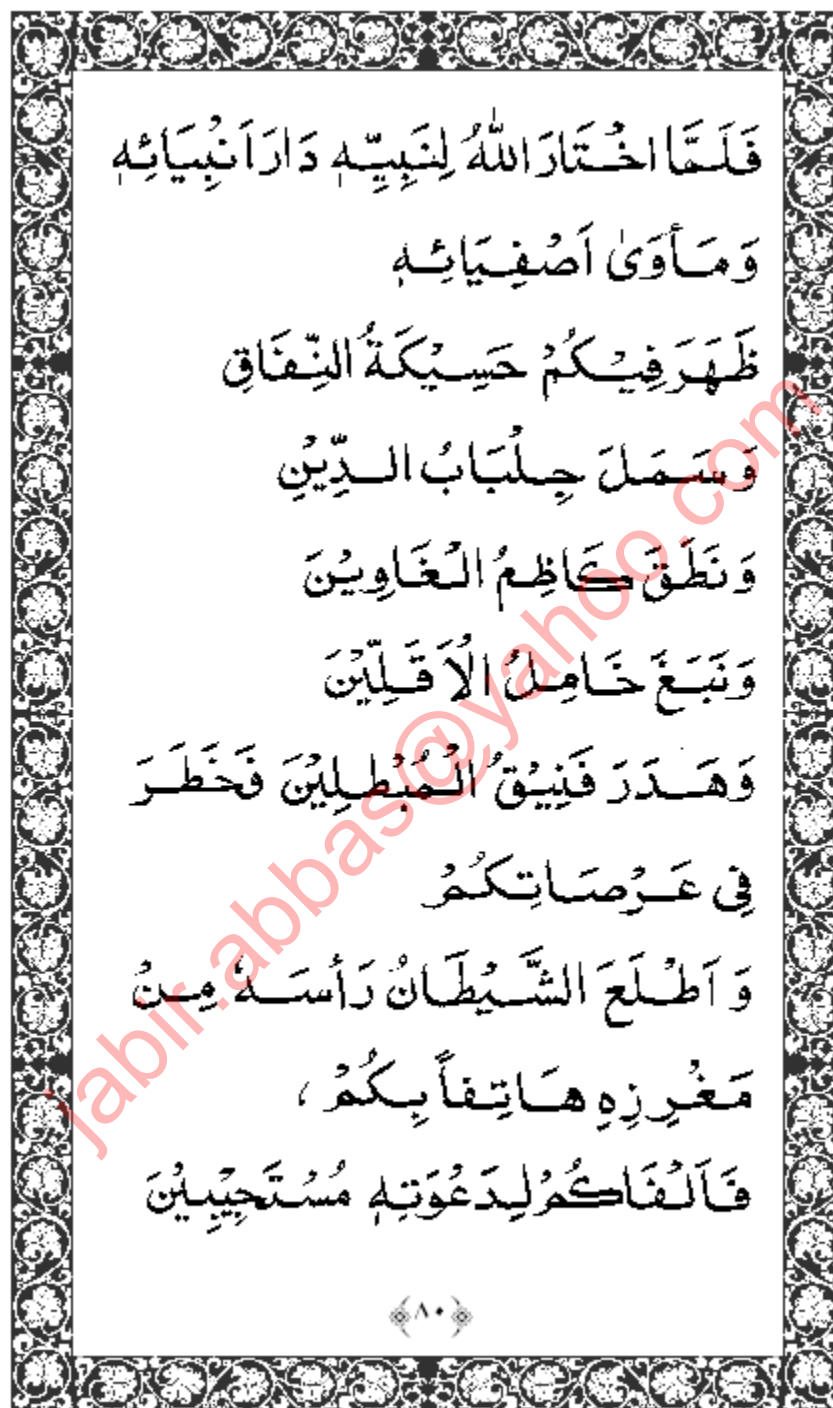 فَلَمَّا اخْتَارَ اللّٰهُ لِنَبِيِّهٖ دَارَ اَنْبِيَائِهٖ
وَمَأْوَىٰ اَصْفِيَائِهٖ
ظَهَرَ فِيْكُمْ حَسِيْكَةُ النِّفَاقِ
وَسَمَلَ جِلْبَابُ الدِّيْنِ
وَنَطَقَ كَاظِمُ الْغَاوِيْنَ
وَنَبَغَ خَامِلُ الْاَقَلِّيْنَ
وَهَدَرَ فَنِيْقُ الْمُبْطِلِيْنَ فَخَطَرَ
فِي عَرْصَاتِكُمْ
وَ اَطْلَعَ الشَّيْطَانُ رَأْسَهٗ مِنْ
مَغْرِزِهِ هَاتِفاً بِكُمْ ،
فَاَلْفَاكُمْ لِدَعْوَتِهٖ مُسْتَجِيْبِيْنَ
﴿٨٠﴾
jabir.abbas@yahoo.com